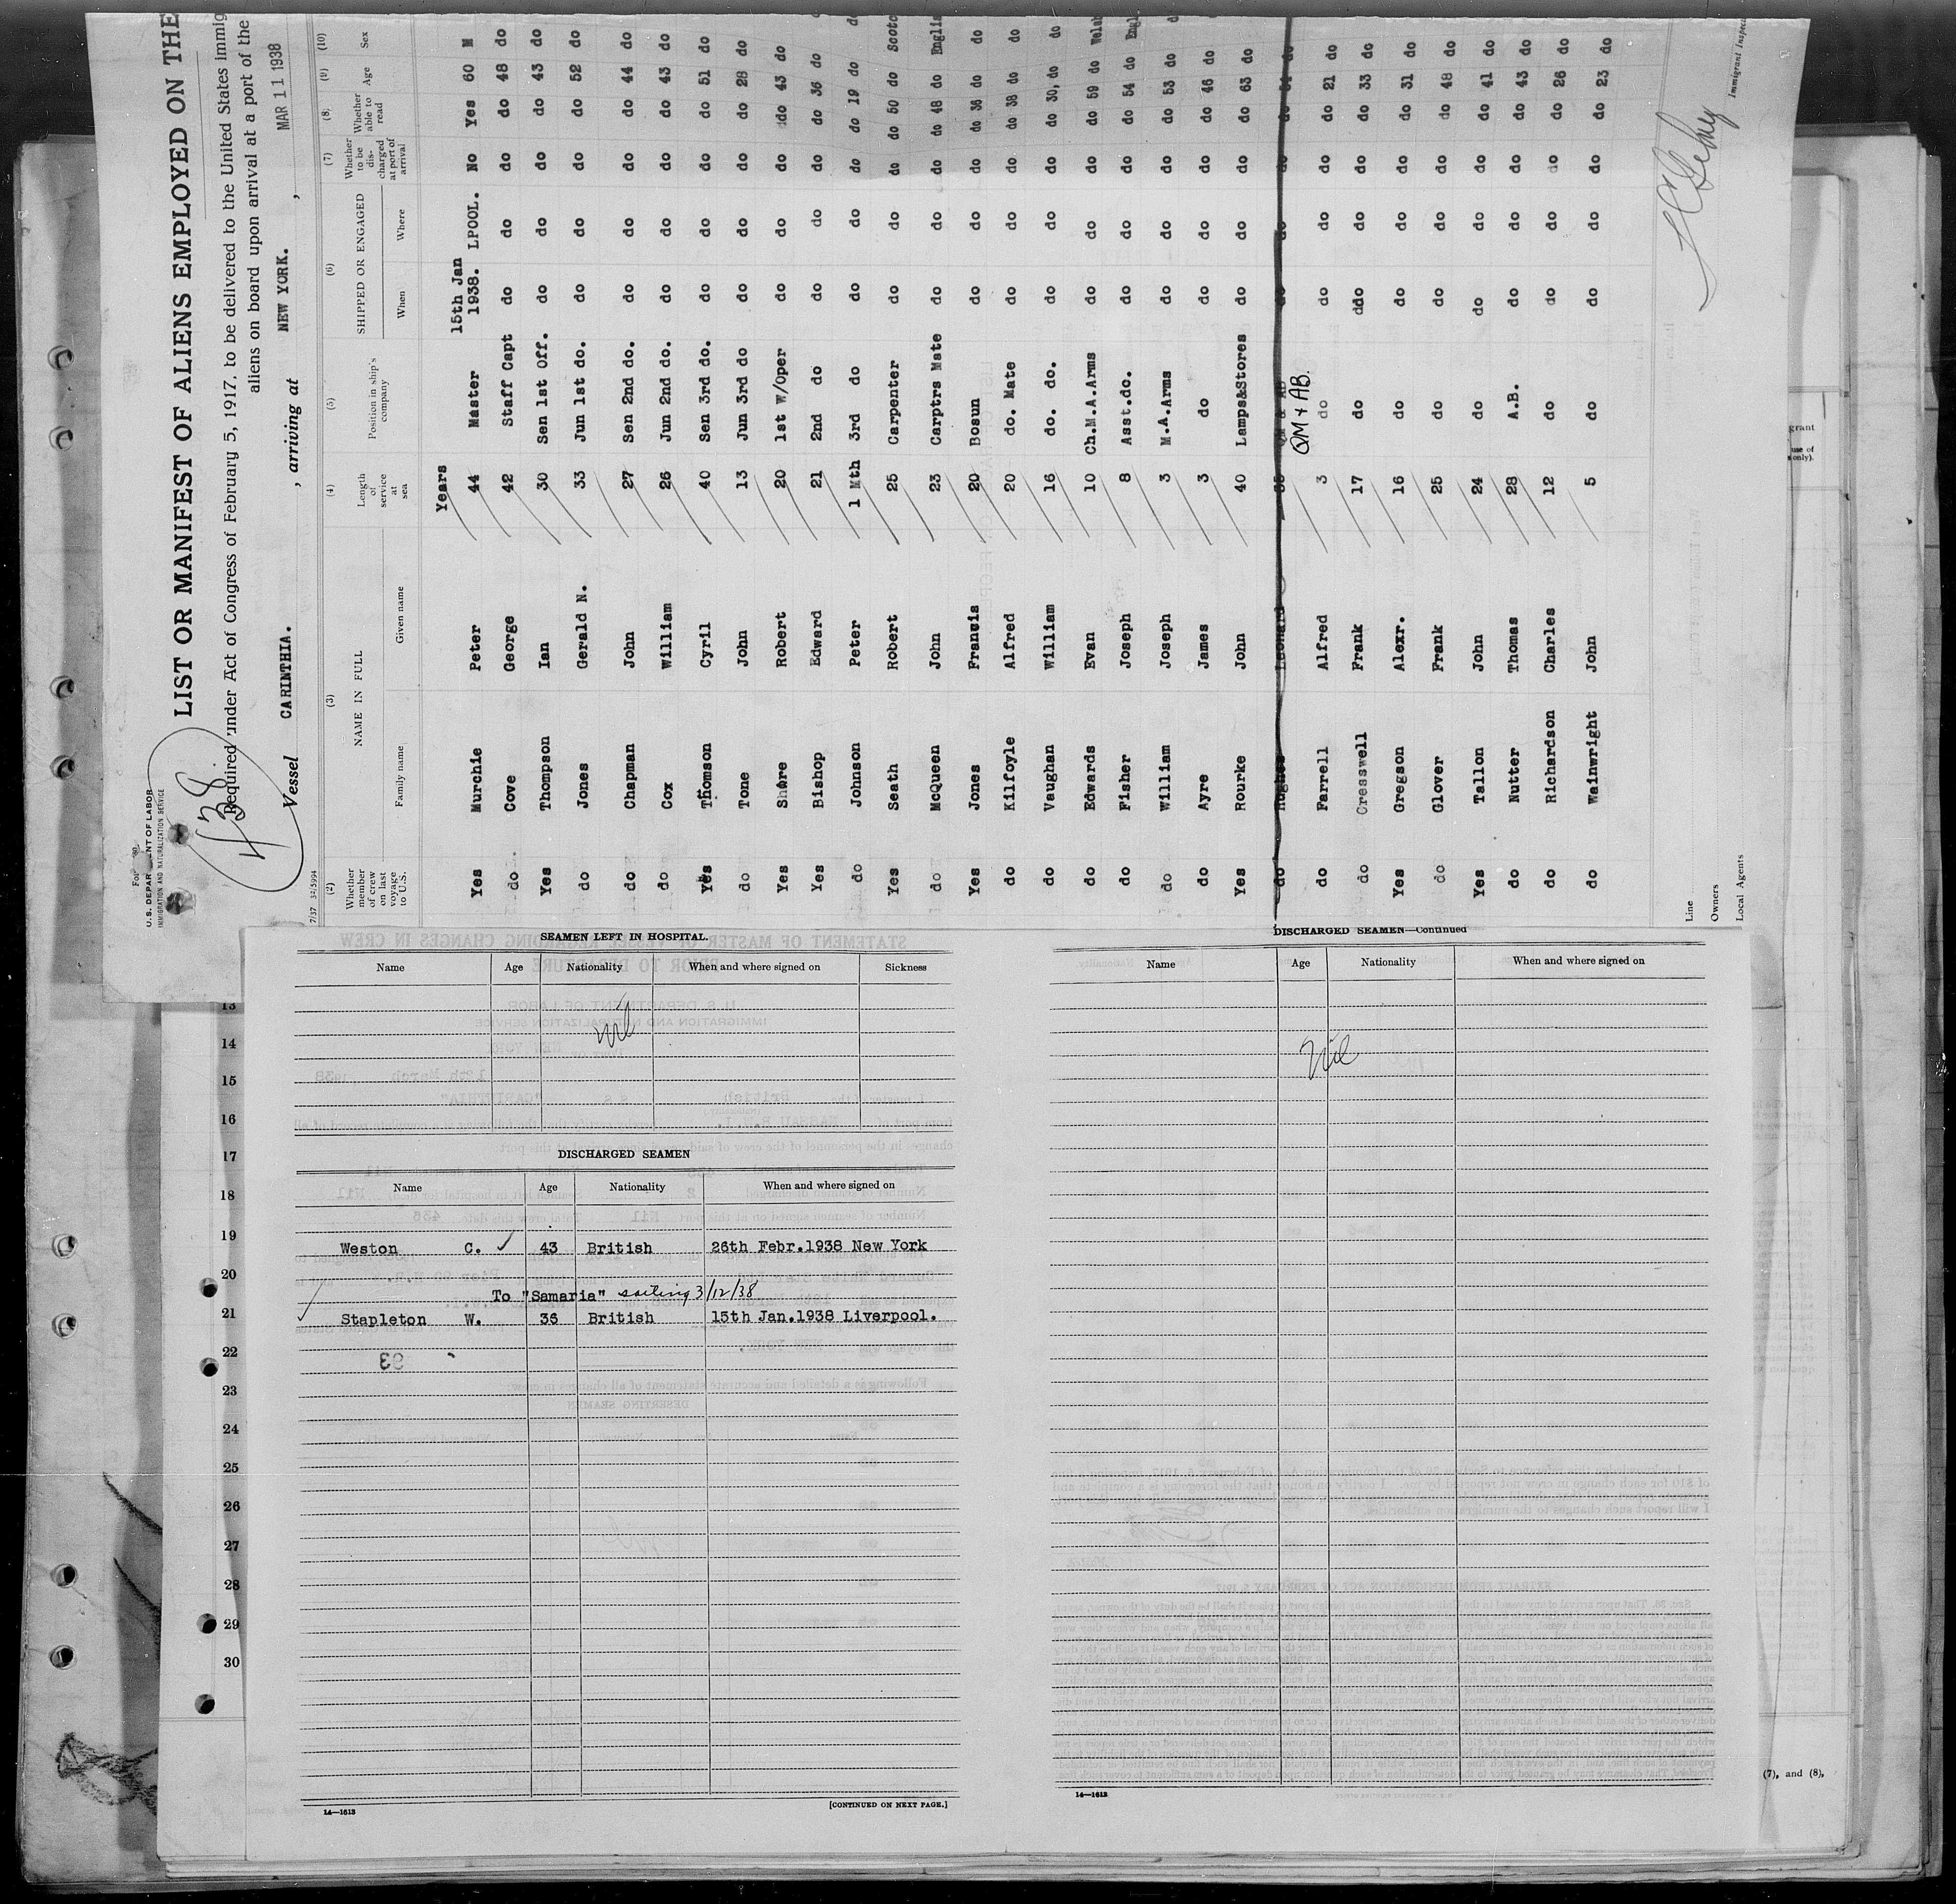 U.S. DEPARTMENT OF LABOR
IMMIGRATION AND NATURALIZATION SERVICE
438
LIST OR MANIFEST OF ALIENS EMPLOYED ON THE
Required under Act of Congress of February 5, 1917, to be delivered to the United States immig
aliens on board upon arrival at a port of the
Vessel CARINTHIA. , arriving at NEW YORK. , MAR 11 1938
7/37
(2) (3) (4) (5) (6) (7) (8) (9) (10)
Whether member of crew on last voyage to U.S. NAME IN FULL Family name Given name Length of service at sea Position in ship's company SHIPPED OR ENGAGED When Where Whether to be discharged at port of arrival Whether able to read Age Sex
Years 15th Jan
Yes Murchie Peter 44 Master 1938. LPOOL. No Yes 60 M
do. Cove George 42 Staff Capt do do do do 48 do
Yes Thompson Ian 30 Sen 1st Off. do do do do 43 do
do Jones Gerald N. 33 Jun 1st do. do do do do 52 do
do Chapman John 27 Sen 2nd do. do do do do 44 do
do Cox William 26 Jun 2nd do. do do do do 43 do
Yes Thomson Cyril 40 Sen 3rd do. do do do do 51 do
do Tone John 13 Jun 3rd do do do do do 28 do
Yes Shore Robert 20 1st W/Oper do do do do 43 do
Yes Bishop Edward 21 2nd do do do do do 36 do
do Johnson Peter 1 Mth 3rd do do do do do 19 do do
Yes Seath Robert 25 Carpenter do do do do 50 do Scotc
do McQueen John 23 Carptrs Mate do do do do 48 do Englis
Yes Jones Francis 20 Bosun do do do do 36 do do
do Kilfoyle Alfred 20 do. Mate do do do. do 38 do do
do Vaughan William 16 do. do. do do do do 30, do do
do Edwards Evan 10 Ch.M.A.Arms do do do do 59 do Welsh
do Fisher Joseph 8 Asst.do. do do do do 54 do Engl
do William Joseph 3 M.A.Arms do do do do 53 do d
do Ayre James 3 do do do do do 46 do
Yes Rourke John 40 Lamps&Stores do do do do 63 do
do Hughes Leonard do do do do do
QM + AB.
do Farrell Alfred 3 do do do do do 21 do
do Cresswell Frank 17 do ddo do do do 33 do
Yes Gregson Alexr. 16 do do do do do 31 do
do Glover Frank 25 do do do do do 48 do
Yes Tallon John 24 do do do do do 41 do
do Nutter Thomas 28 A.B. do do do do 43 do
do Richardson Charles 12 do do do do do 26 do
do Wainwright John 5 do do do do do 23 do
Line
Owners
Local Agents
Immigrant Inspec
grant
use of
s only).
SEAMEN LEFT IN HOSPITAL.
Name Age Nationality When and where signed on Sickness
nil
DISCHARGED SEAMEN
Name Age Nationality When and where signed on
Weston C. 43 British 26th Febr.1938 New York
To "Samaria" sailing 3/12/38
Stapleton W. 36 British 15th Jan.1938 Liverpool.
93
14—1613 [CONTINUED ON NEXT PAGE.]
DISCHARGED SEAMEN—Continued
Name Age Nationality When and where signed on
Nil
14—1613
13
14
15
16
17
18
19
20
21
22
23
24
25
26
27
28
29
30
(7), and (8),